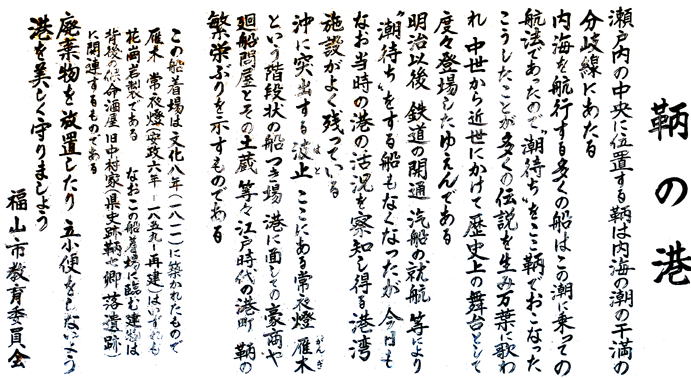 鞆の港
瀬戸内の中央に位置する鞆は内海の潮の干満の
分岐線にあたる
内海を航行する多くの船はこの潮に乗っての
航法であったので〝潮待ち〟をここ鞆でおこなった
こうしたことが多くの伝説を生み万葉に歌わ
れ 中世から近世にかけて歴史上の舞台として
度々登場したゆえんである
明治以後 鉄道の開通 汽船の就航 等により
〝潮待ち〟をする船もなくなったが 今日も
なお当時の港の活況を察知し得る港湾
施設がよく残っている
沖に突出する波止 ここにある常夜燈 雁木
はと
がんぎ
という階段状の船つき場 港に面しての豪商や
廻船問屋とその土蔵 等々江戸時代の港町 鞆の
繁栄ぶりを示すものである
この船着場は文化八年(一八一一)に築かれたもので
雁木 常夜燈(安政六年-一八五九-再建)はいずれも
花崗岩製である なおこの船着場に臨む建物は
背後の保命酒屋 旧中村家(県史跡鞆七卿落遺跡)
に関連するものである
廃棄物を放置したり 立小便をしないよう
港を美しく守りましょう
福山市教育委員会